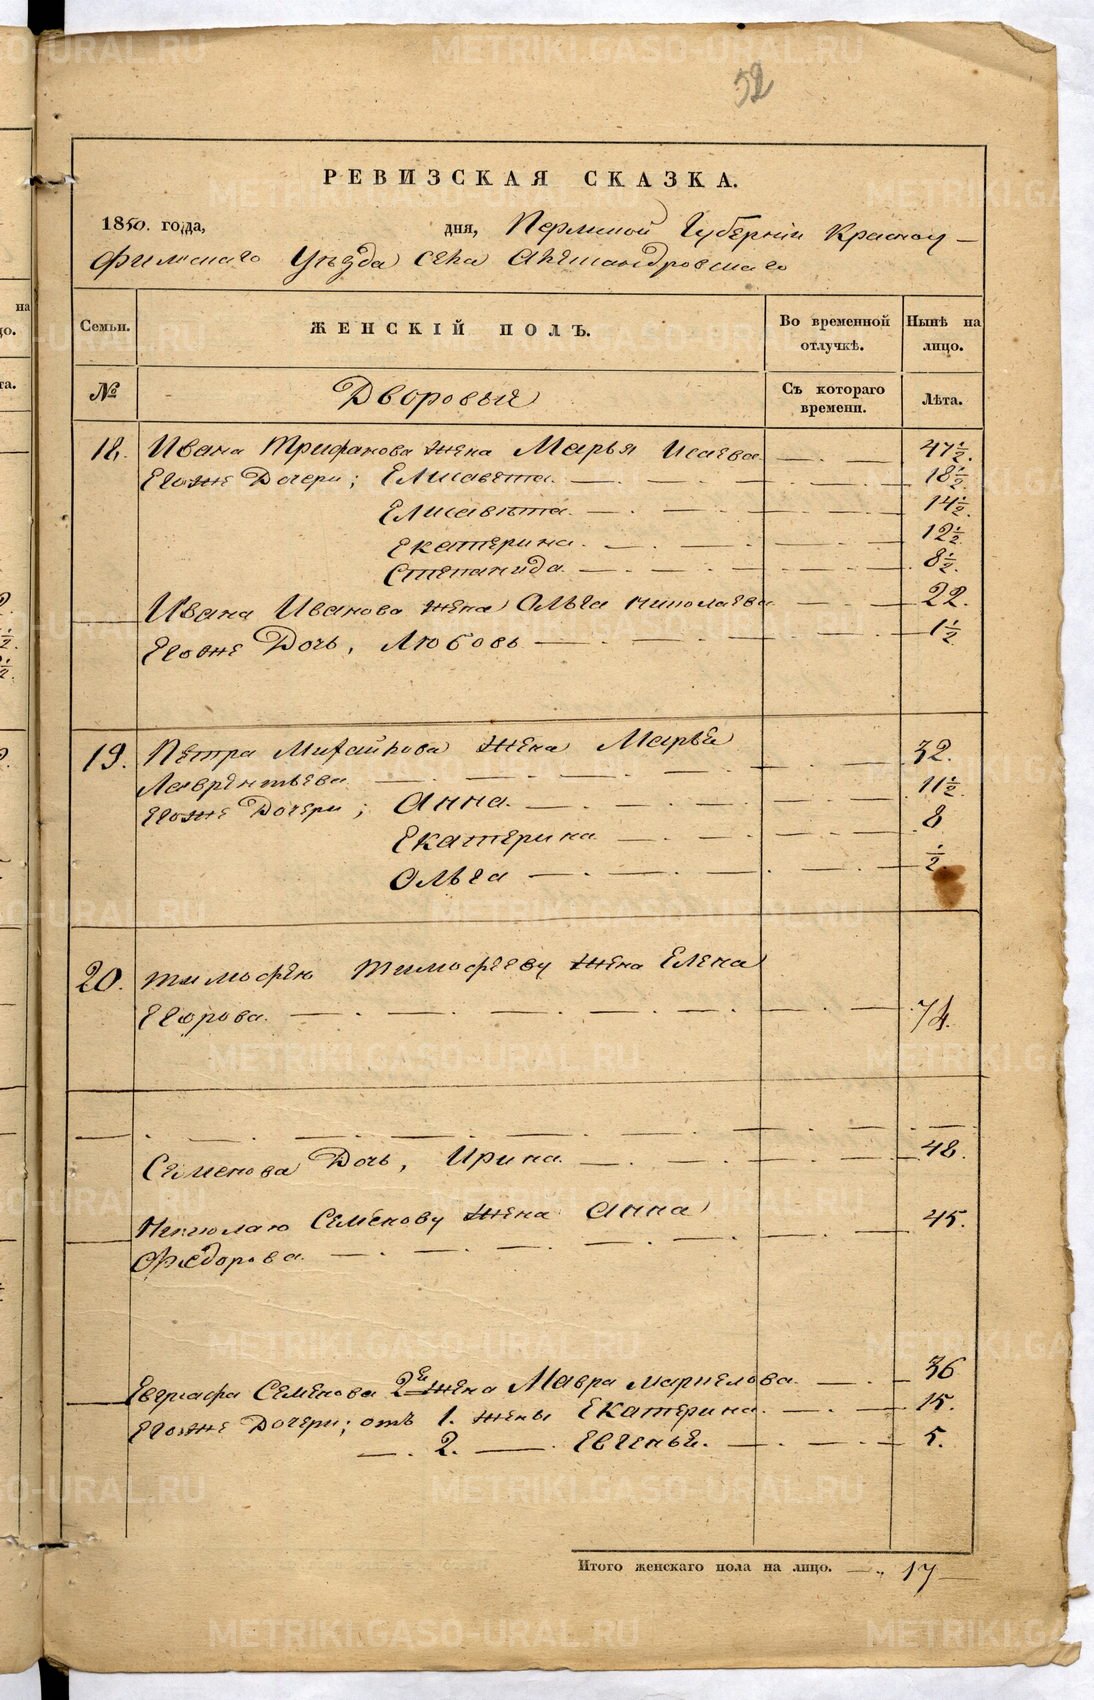 52
РЕВИЗСКАЯ СКАЗКА.
1850. года, дня, Пермской Губерніи Красноу-
фимскаго Уѣзда села Александровскаго
на
Семьи. ЖЕНСКІЙ ПОЛЪ. Во временной отлучкѣ. Нынѣ на лицо.
№ Дворовыя Съ котораго времени. Лѣта.
18. Ивана Трифанова жена Марья Исаева 47½.
Егоже Дочери; Елисавета 18½.
Елисавѣта 14½.
Екатерина 12½.
Степанида 8½.
Ивана Иванова жена Ольга Николаева 22.
Егоже Дочь, Любовь 1½
19. Петра Михайлова жена Марья 32.
Лаврентьева
Егоже Дочери; Анна 11½.
Екатерина 8
Ольга ½.
20. Тимофею Тимофееву жена Елена
Егорова 74.
Семенова Дочь, Ирина 48.
Николаю Семенову жена Анна 45.
Федорова
Евграфа Семенова 2я жена Мавра Маркелова 36
Егоже Дочери; отъ 1. жены Екатерина 15.
2. Евгенья. 5.
Итого женскаго пола на лицо. 17
METRIKI.GASO-URAL.RU